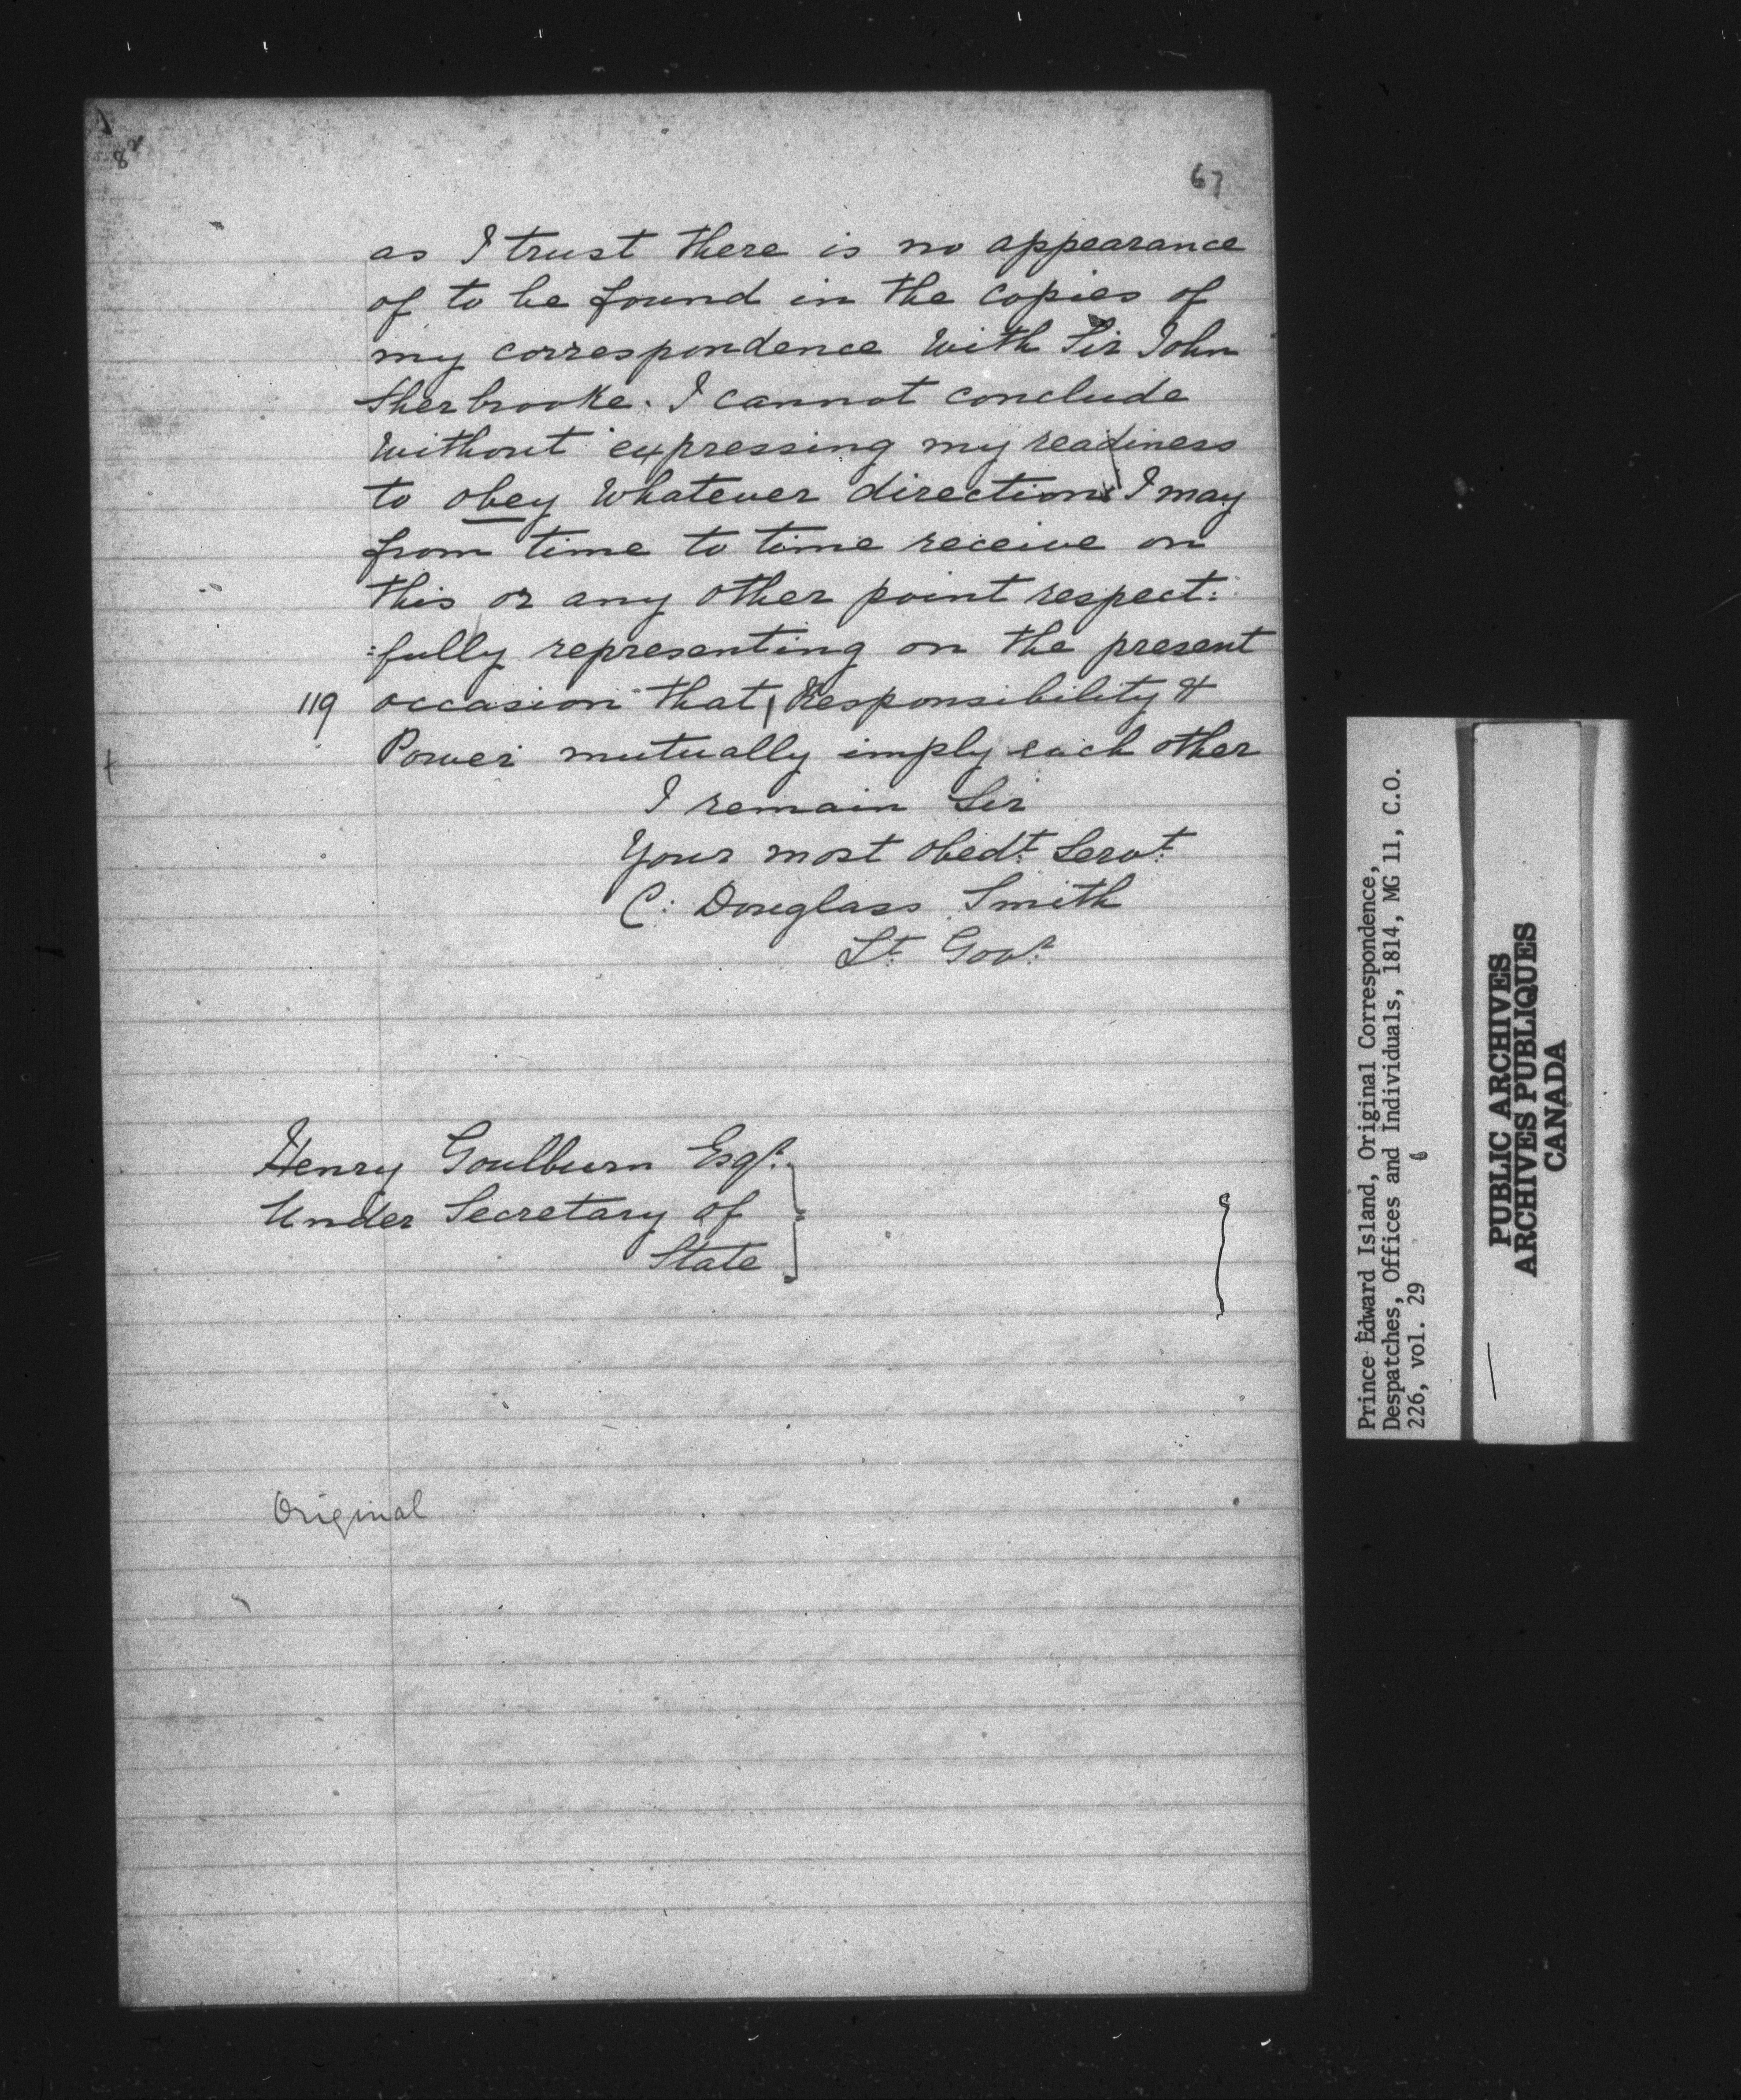 67
as I trust there is no appearance
of to be found in the copies of
my correspondence with Sir John
Sherbrooke. I cannot conclude
without expressing my readiness
to obey whatever directions I may
from time to time receive on
this or any other point respect:
:fully representing on the present
119 occasion that Responsibility &
Power mutually imply each other
I remain Sir
Your most obedt. Servt.
C: Douglass Smith
Lt. Govr.
Henry Goulburn Esqr.
Under Secretary of
State
Original
Prince Edward Island, Original Correspondence,
Despatches, Offices and Individuals, 1814, MG 11, C.O.
226, vol. 29
PUBLIC ARCHIVES
ARCHIVES PUBLIQUES
CANADA